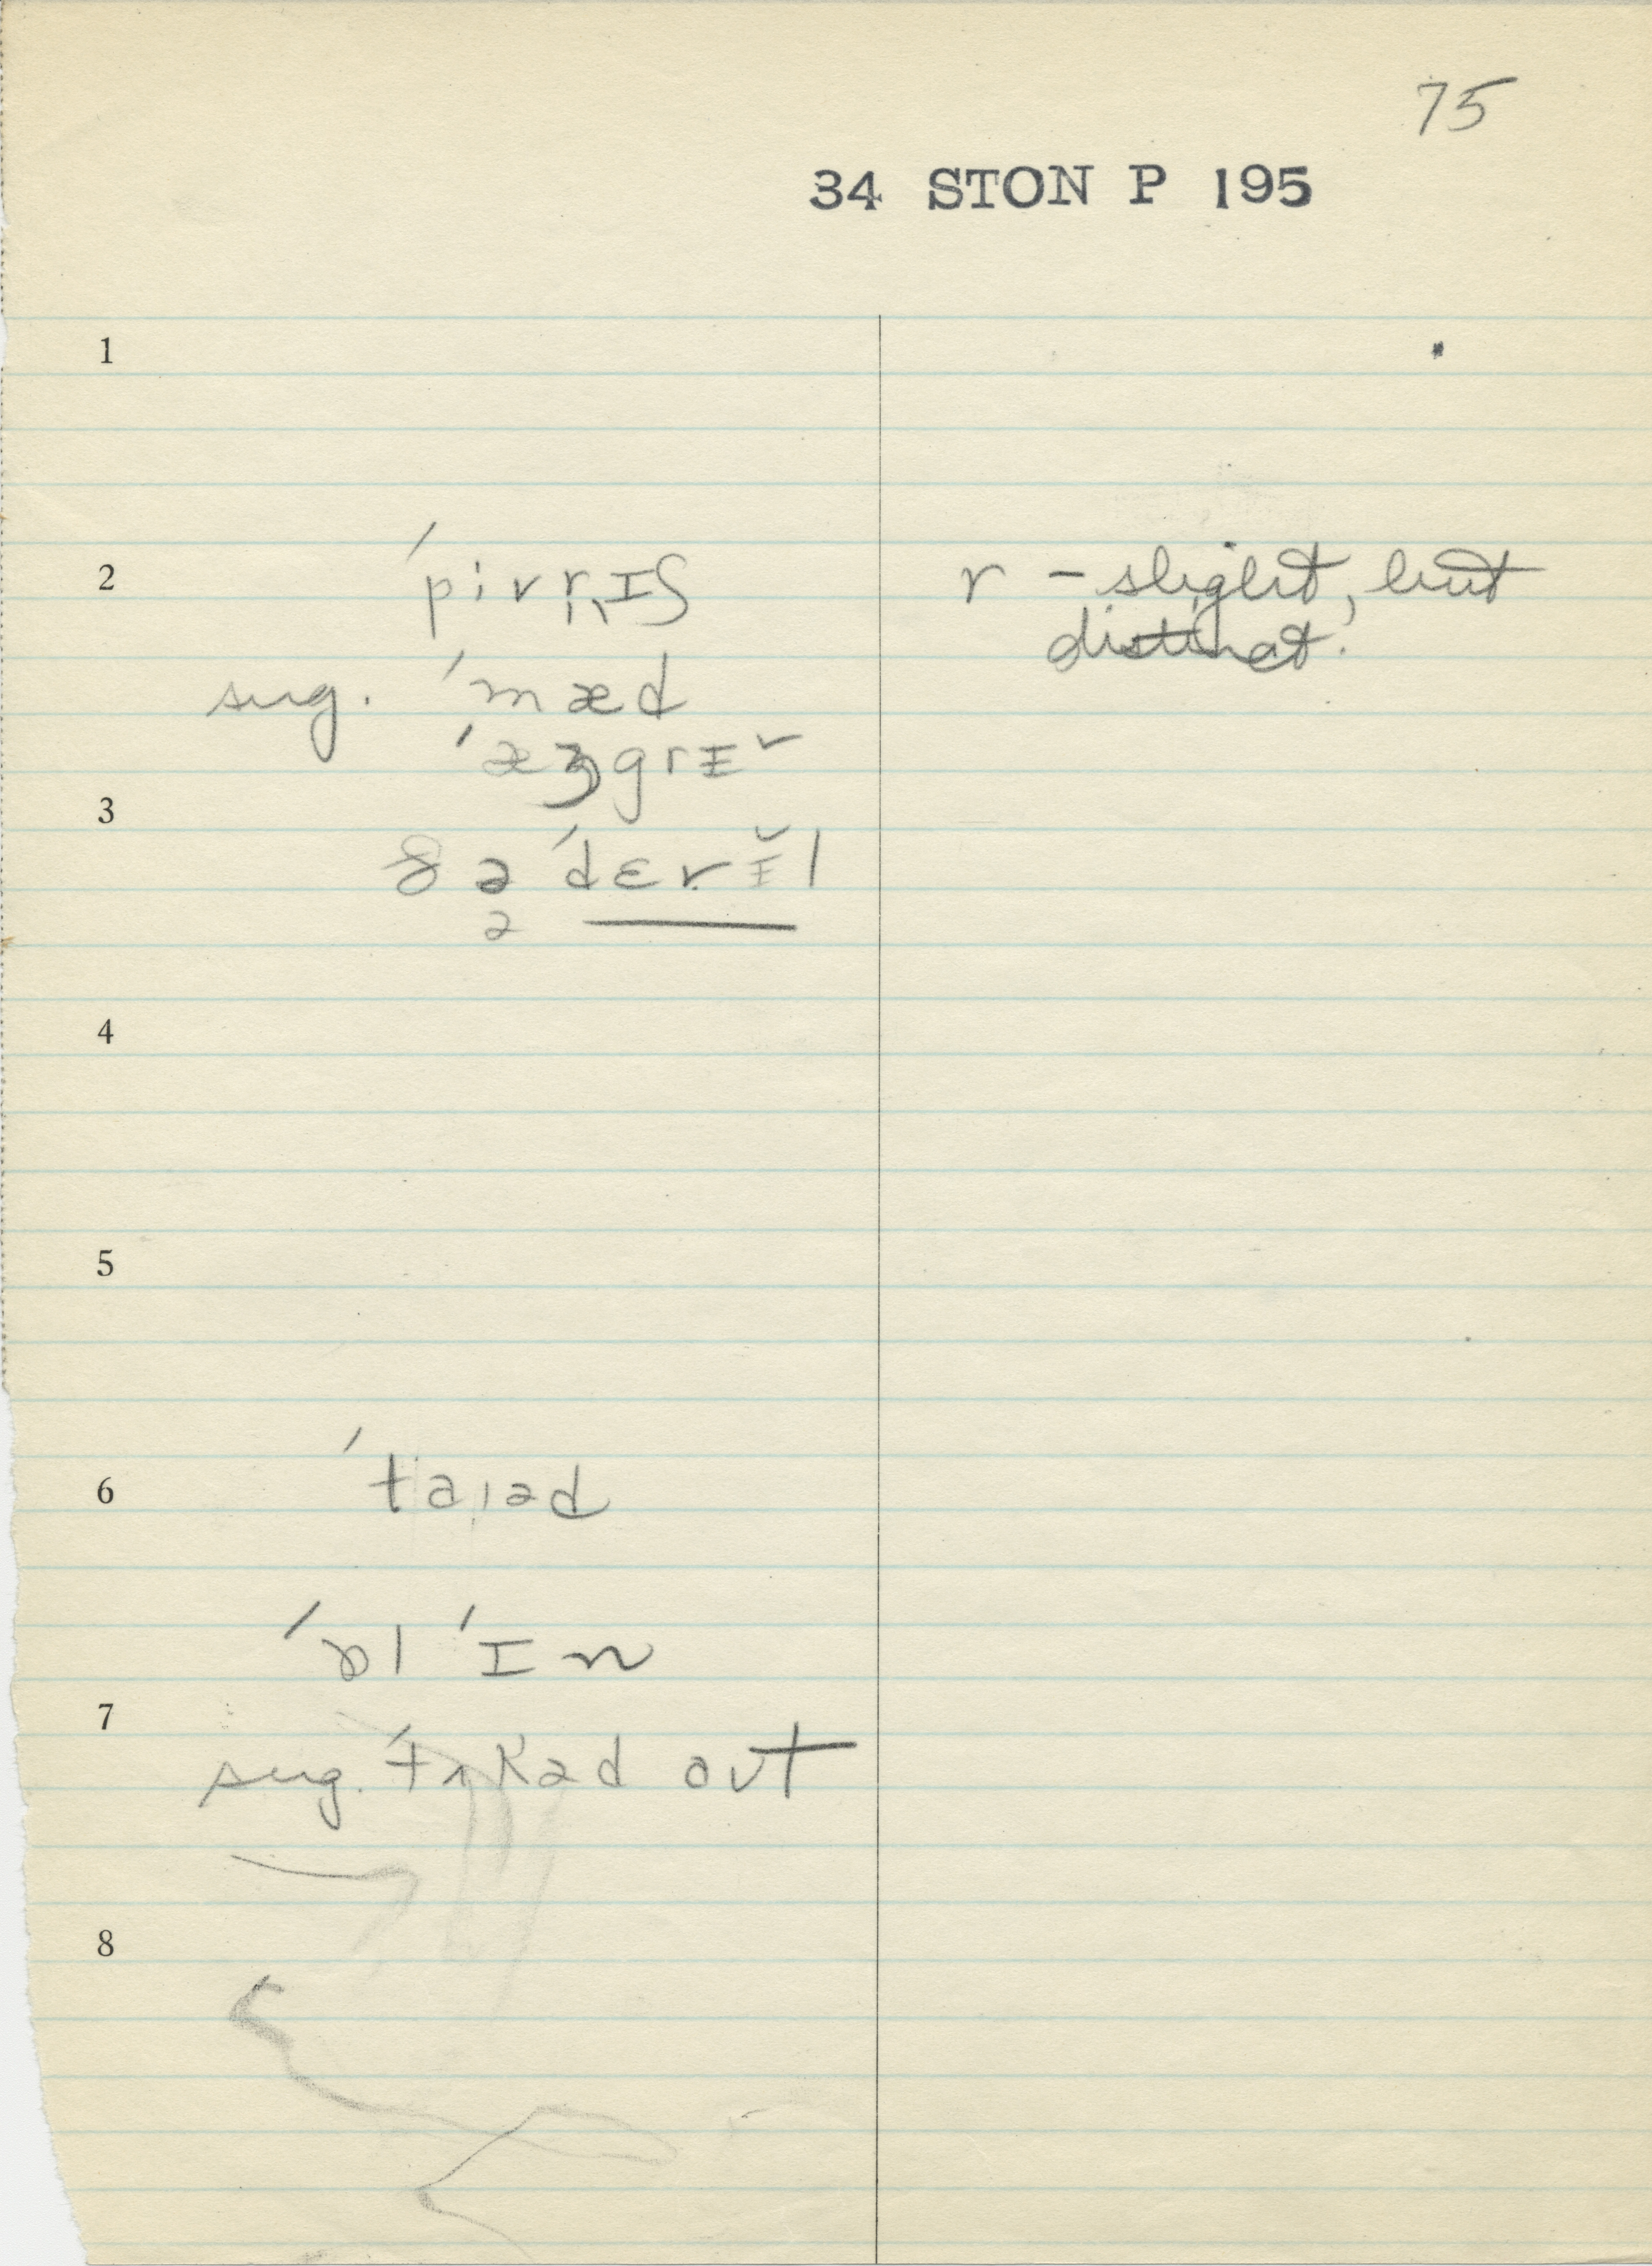 75
34 STON P 195
1
2 ˈpɪvr̩ɪʃ r – slight, but
distinct.
sug. ˈmæd
ˈæŋgrɪ˅
3
ðə ˈdɛvɪ̆l
ə
4
5
6 ˈtaɪəd
ˈɒl ˈɪn
7
sug. ˈtʌkəd out
8